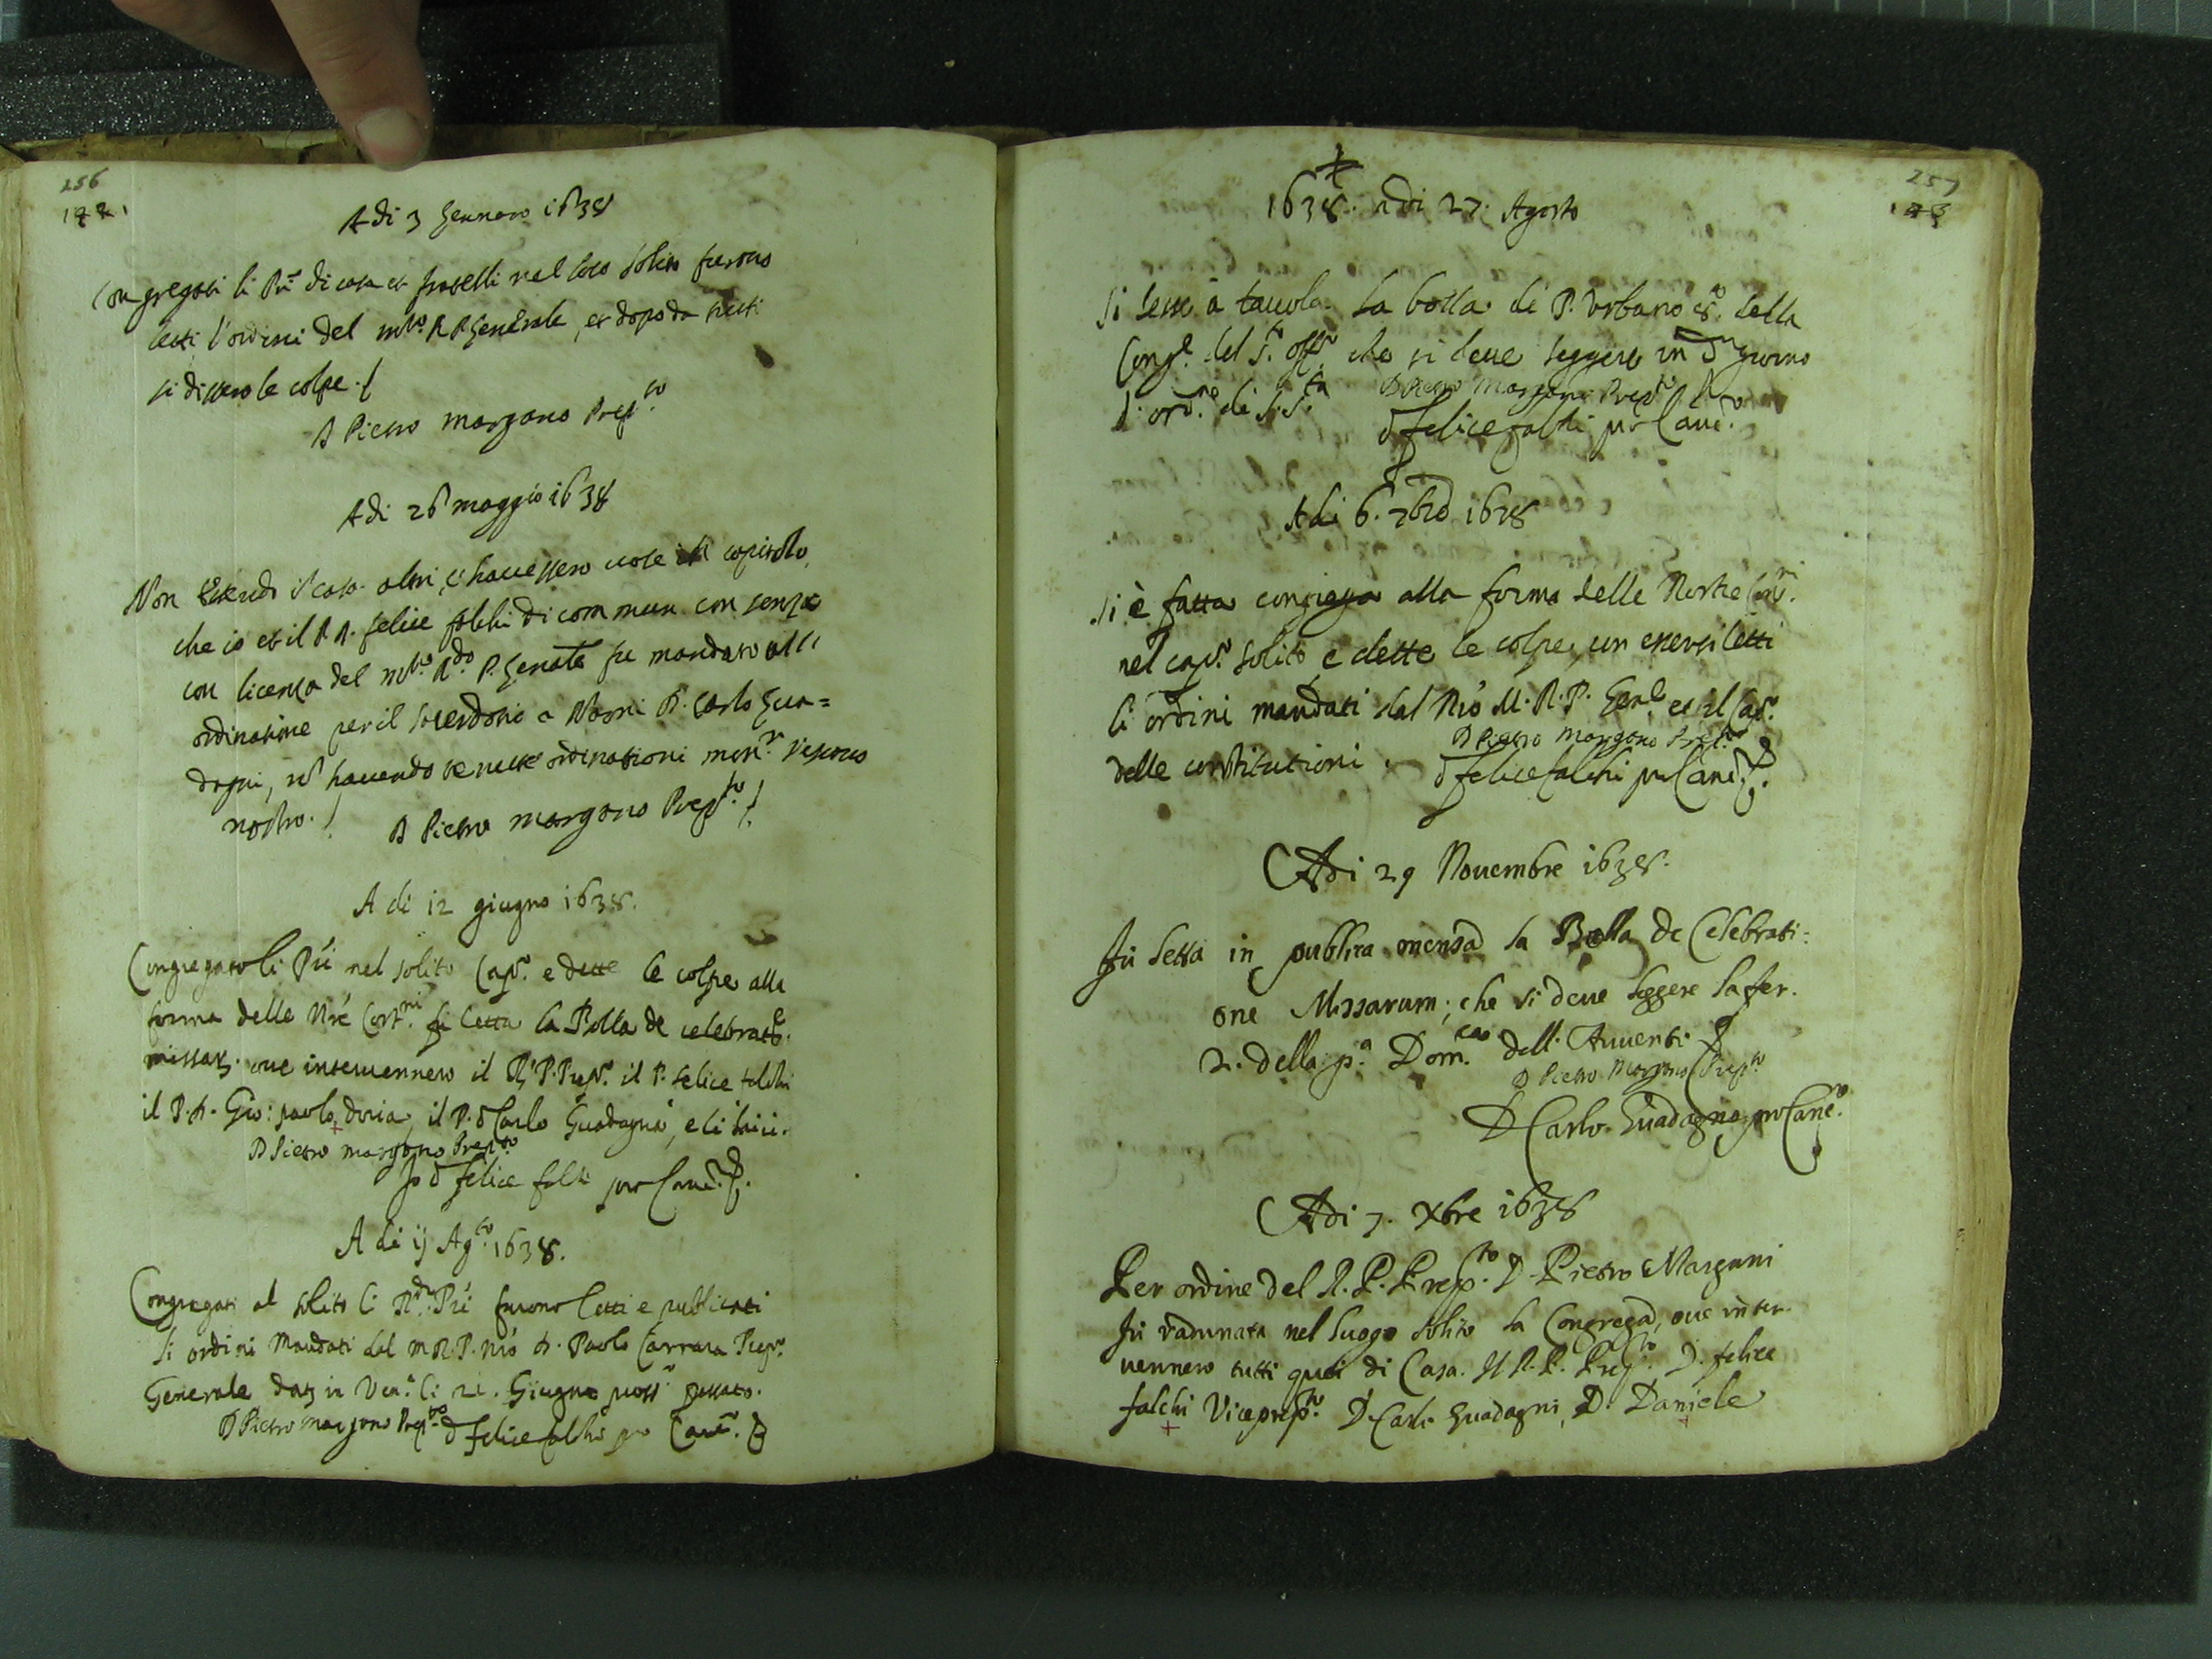 256
Adi 3 Gennaro 1638
Congregati li Pri di casa et fratelli nel loco solito furono
letti l'ordini del mto. R P Generale, et dopo da tutti
si dissero le colpe.
D Pietro Margano Prepto
Adi 26 maggio 1638
Non essendo i casa altri, c'havessero voce in capitolo,
che io et il P D. felice falchi di commun consenso
con licenza del mto. Rdo. P. Genale fu mandato all'
ordinatione per il sacerdotio a Narni D. Carlo Gua=
dagni, nō havendo tenute ordinationi monr. vescovo
nostro.
D Pietro margano Prepto
A di 12 giugno 1638.
Congregato li Pri nel solito Capo. e dette le colpe alla
forma delle Nre Cortni. fu letta la Bolla de celebrat.
missar. ove intervennero il R P. Prepo. il P. felice falchi
il P. D. Gio: paolo doria, il P. d Carlo Guadagni, e li laici.
D Pietro margano Prepto
Jo d felice falchi pro Canc.
A di ij Agto. 1638.
Congregati al solito li Rdi. Pri furono letti e publicati
li ordini Mandati dal m R. P. nro D. Paolo Carrara Prepo.
Generale dat in Ven. li 21. Giugno pross passato.
D Pietro Margano Prepto d felice falchi pro Canc.
257
1638. adi 27. Agosto
Si lesse à tavola la bolla di P. Urbano 8o. della
Congne del So. Offo che si deve leggere in dn giorno
d'ordne di S. Sta D Pietro Margano Prepto
d felice falchi pro Canc.
Adi 6. 7bre 1638
Si è fatta congrega alla forma delle Nostre Conri.
nel capo. solito, e dette le colpe, con essersi letti
li ordini mandati dal Nro M. R. P. Genle et il Capo.
D Pietro Margano Prepto
delle constitutioni. d felice falchi pro Canc.
Adi 29 Novembre 1638.
Fù letta in publica mensa la Bolla de Celebrati=
one Missarum; che si deve leggere la fer.
2. della pa. Domca dell' Avvento
D Pietro Margano Prepto
D Carlo Guadagno pro Canco.
Adi 7. Xbre 1638
Per ordine del R. P. Prepto. D. Pietro Margani
fù radunata nel luogo solito la Congrega, ove inter-
vennero tutti quei di Casa. Il R. P. Prepto. D. felice
falchi Viceprepto. D. Carlo Guadagni, D. Daniele